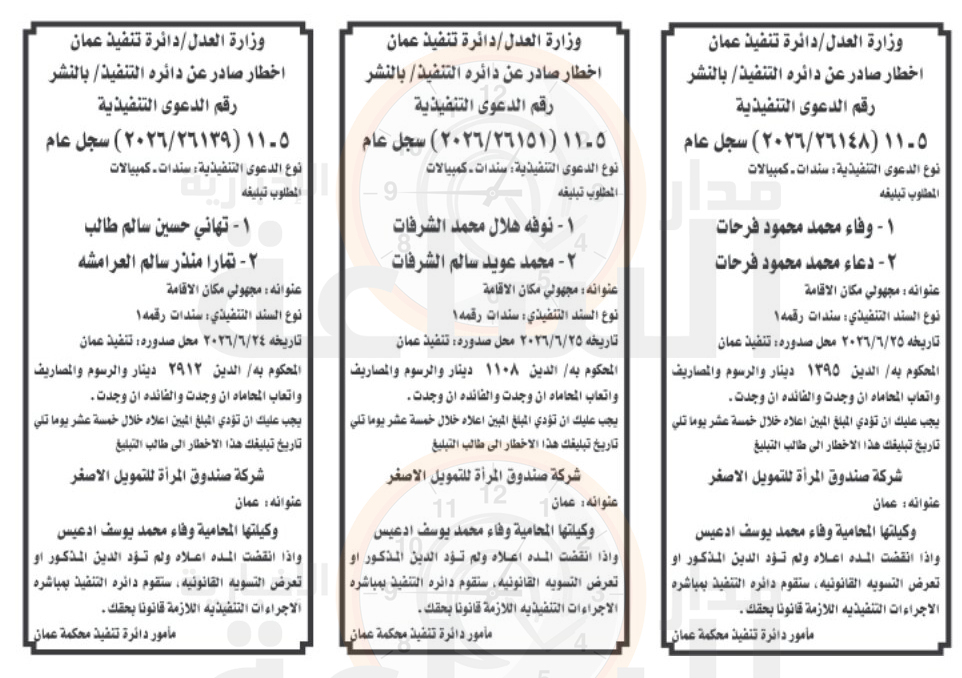 وزارة العدل/دائرة تنفيذ عمان
اخطار صادر عن دائره التنفيذ/ بالنشر
رقم الدعوى التنفيذية
٥ـ١١ (٢٠٢٦/٢٦١٤٨) سجل عام
نوع الدعوى التنفيذية: سندات ـ كمبيالات
المطلوب تبليغه
١- وفاء محمد محمود فرحات
٢- دعاء محمد محمود فرحات
عنوانه: مجهولي مكان الاقامة
نوع السند التنفيذي: سندات رقمه١
تاريخه ٢٠٢٦/٦/٢٥ محل صدوره: تنفيذ عمان
المحكوم به/ الدين ١٣٩٥ دينار والرسوم والمصاريف
واتعاب المحاماه ان وجدت والفائده ان وجدت.
يجب عليك ان تؤدي المبلغ المبين اعلاه خلال خمسة عشر يوما تلي
تاريخ تبليغك هذا الاخطار الى طالب التبليغ
شركة صندوق المرأة للتمويل الاصغر
عنوانه: عمان
وكيلتها المحامية وفاء محمد يوسف ادعيس
واذا انقضت المده اعلاه ولم تؤد الدين المذكور او
تعرض التسويه القانونيه، ستقوم دائره التنفيذ بمباشره
الاجراءات التنفيذيه اللازمة قانونا بحقك.
مأمور دائرة تنفيذ محكمة عمان
وزارة العدل/دائرة تنفيذ عمان
اخطار صادر عن دائره التنفيذ/ بالنشر
رقم الدعوى التنفيذية
٥ـ١١ (٢٠٢٦/٢٦١٥١) سجل عام
نوع الدعوى التنفيذية: سندات ـ كمبيالات
المطلوب تبليغه
١- نوفه هلال محمد الشرفات
٢- محمد عويد سالم الشرفات
عنوانه: مجهولي مكان الاقامة
نوع السند التنفيذي: سندات رقمه١
تاريخه ٢٠٢٦/٦/٢٥ محل صدوره: تنفيذ عمان
المحكوم به/ الدين ١١٠٨ دينار والرسوم والمصاريف
واتعاب المحاماه ان وجدت والفائده ان وجدت.
يجب عليك ان تؤدي المبلغ المبين اعلاه خلال خمسة عشر يوما تلي
تاريخ تبليغك هذا الاخطار الى طالب التبليغ
شركة صندوق المرأة للتمويل الاصغر
عنوانه: عمان
وكيلتها المحامية وفاء محمد يوسف ادعيس
واذا انقضت المده اعلاه ولم تؤد الدين المذكور او
تعرض التسويه القانونيه، ستقوم دائره التنفيذ بمباشره
الاجراءات التنفيذيه اللازمة قانونا بحقك.
مأمور دائرة تنفيذ محكمة عمان
وزارة العدل/دائرة تنفيذ عمان
اخطار صادر عن دائره التنفيذ/ بالنشر
رقم الدعوى التنفيذية
٥ـ١١ (٢٠٢٦/٢٦١٣٩) سجل عام
نوع الدعوى التنفيذية: سندات ـ كمبيالات
المطلوب تبليغه
١- تهاني حسين سالم طالب
٢- تمارا منذر سالم العرامشه
عنوانه: مجهولي مكان الاقامة
نوع السند التنفيذي: سندات رقمه١
تاريخه ٢٠٢٦/٦/٢٤ محل صدوره: تنفيذ عمان
المحكوم به/ الدين ٢٩١٢ دينار والرسوم والمصاريف
واتعاب المحاماه ان وجدت والفائده ان وجدت.
يجب عليك ان تؤدي المبلغ المبين اعلاه خلال خمسة عشر يوما تلي
تاريخ تبليغك هذا الاخطار الى طالب التبليغ
شركة صندوق المرأة للتمويل الاصغر
عنوانه: عمان
وكيلتها المحامية وفاء محمد يوسف ادعيس
واذا انقضت المده اعلاه ولم تؤد الدين المذكور او
تعرض التسويه القانونيه، ستقوم دائره التنفيذ بمباشره
الاجراءات التنفيذيه اللازمة قانونا بحقك.
مأمور دائرة تنفيذ محكمة عمان
مدار الساعة الإخبارية